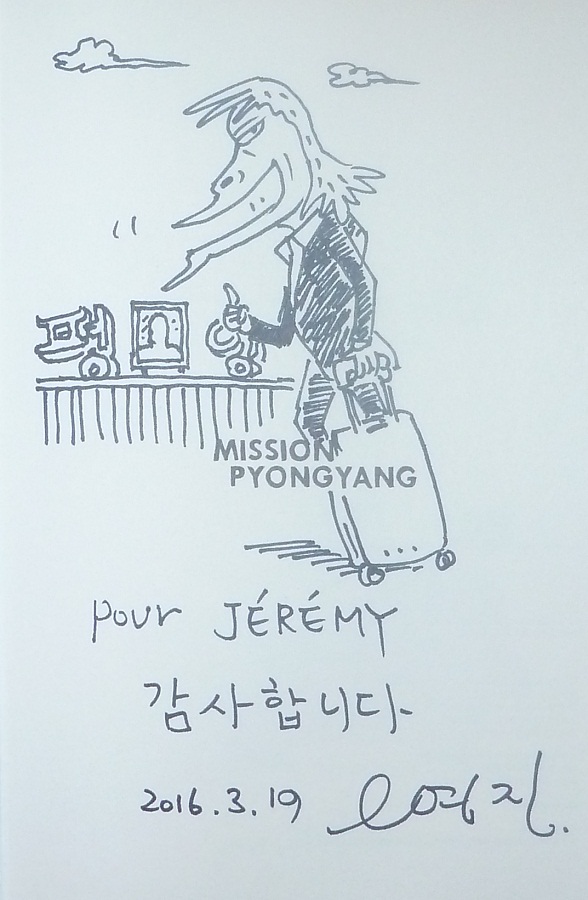 평
MISSION
PYONGYANG
pour JÉRÉMY
감사합니다
2016.3.19 오영진.